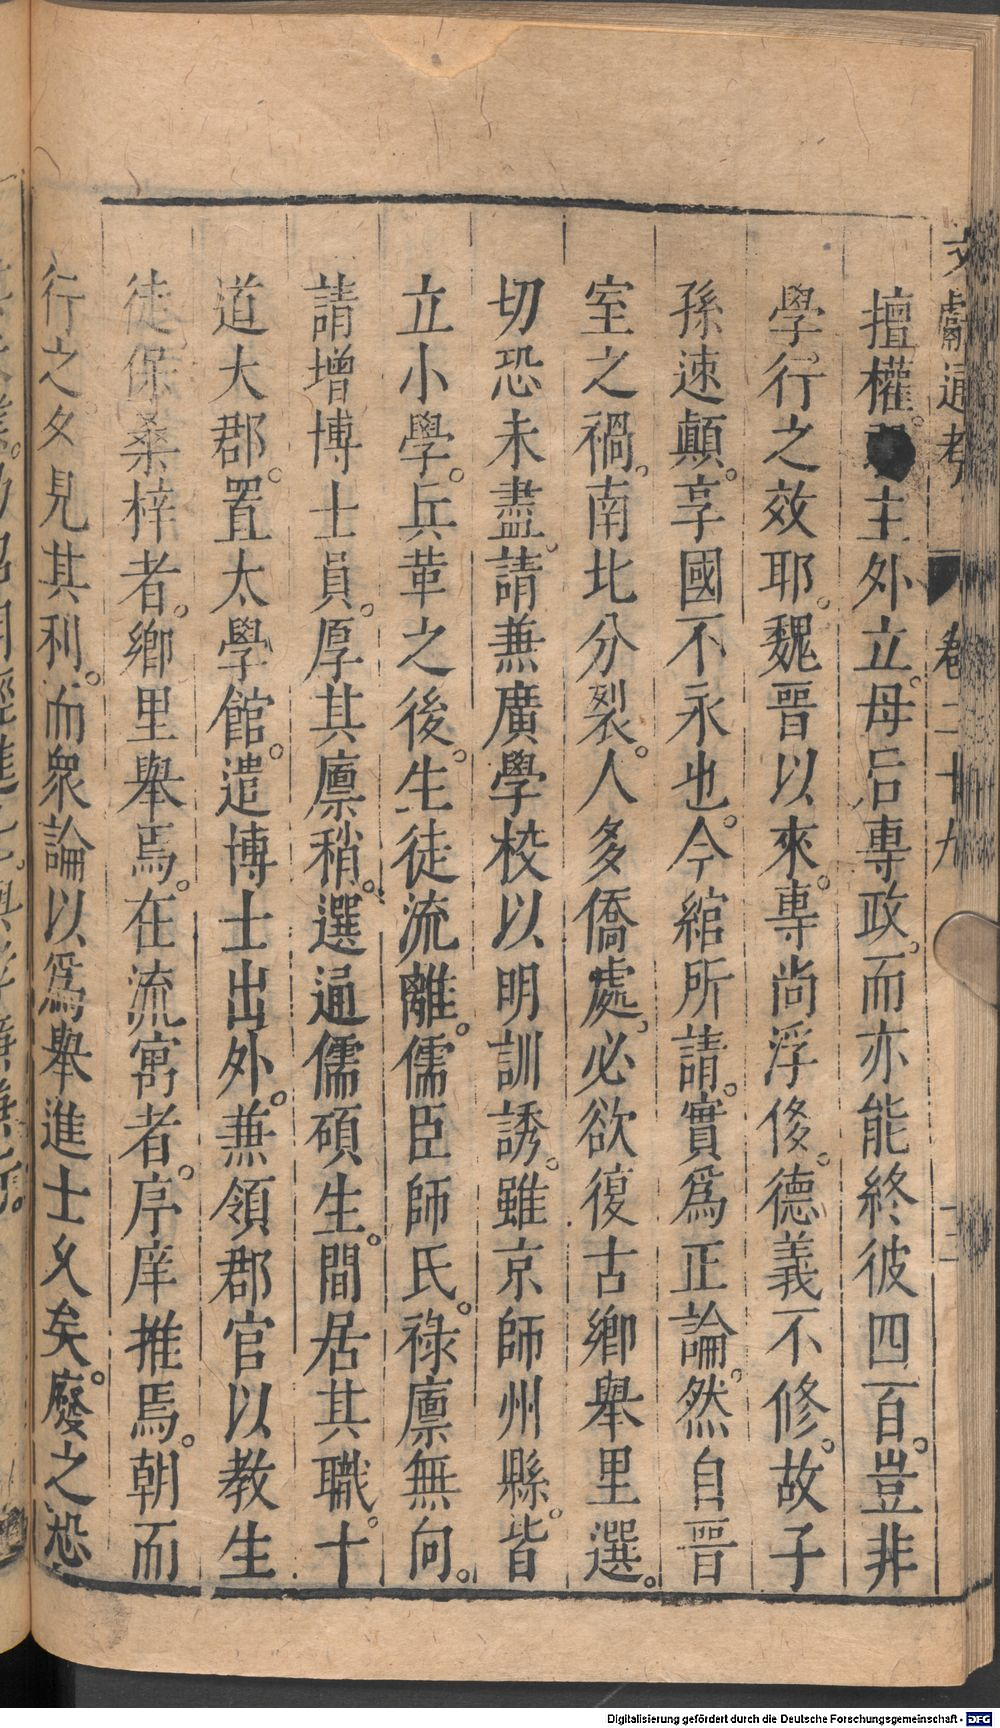 文獻通考 卷二十九
擅權。主外立。母后專政。而亦能終彼四百。豈非
學。行之效耶。魏晉以來。專尚浮侈。德義不修。故子
孫速顛。享國不永也。今綰所請。實爲正論。然自晉
室之禍。南北分裂。人多僑處。必欲復古鄉舉里選。
切恐未盡。請兼廣學校。以明訓誘。雖京師州縣。皆
立小學。兵革之後。生徒流離。儒臣師氏。祿廩無向。
請增博士員。厚其廩稍。選通儒碩生。間居其職。十
道大郡。置太學館。遣博士出外。兼領郡官。以教生
徒。保桑梓者。鄉里舉焉。在流寓者。庠序推焉。朝而
行之。夕見其利。而衆論以爲舉進士久矣。廢之恐
Digitalisierung gefördert durch die Deutsche Forschungsgemeinschaft - DFG